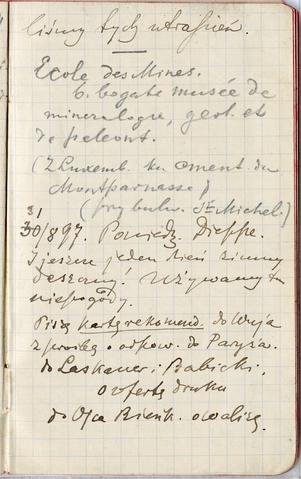 liśmy tych utrapień.
Ecole des Mines.
b. bogate musée de
mineralogie, geol. et
de paleont.
(Z Luxemb. ku cment. du
Montparnasse)
(przy bulw. St Michel.)
31/8 97. Poniedz. Dieppe.
I jeszcze jeden dzień zimny
deszczowy! Używamy tu
niepogody.
Piszę kartę rekomend. do Wuja
z prośbą o odpow. do Paryża.
do Laskauer i Babicki,
o ofertę druku
do Ojca Bieńk. o walizę.